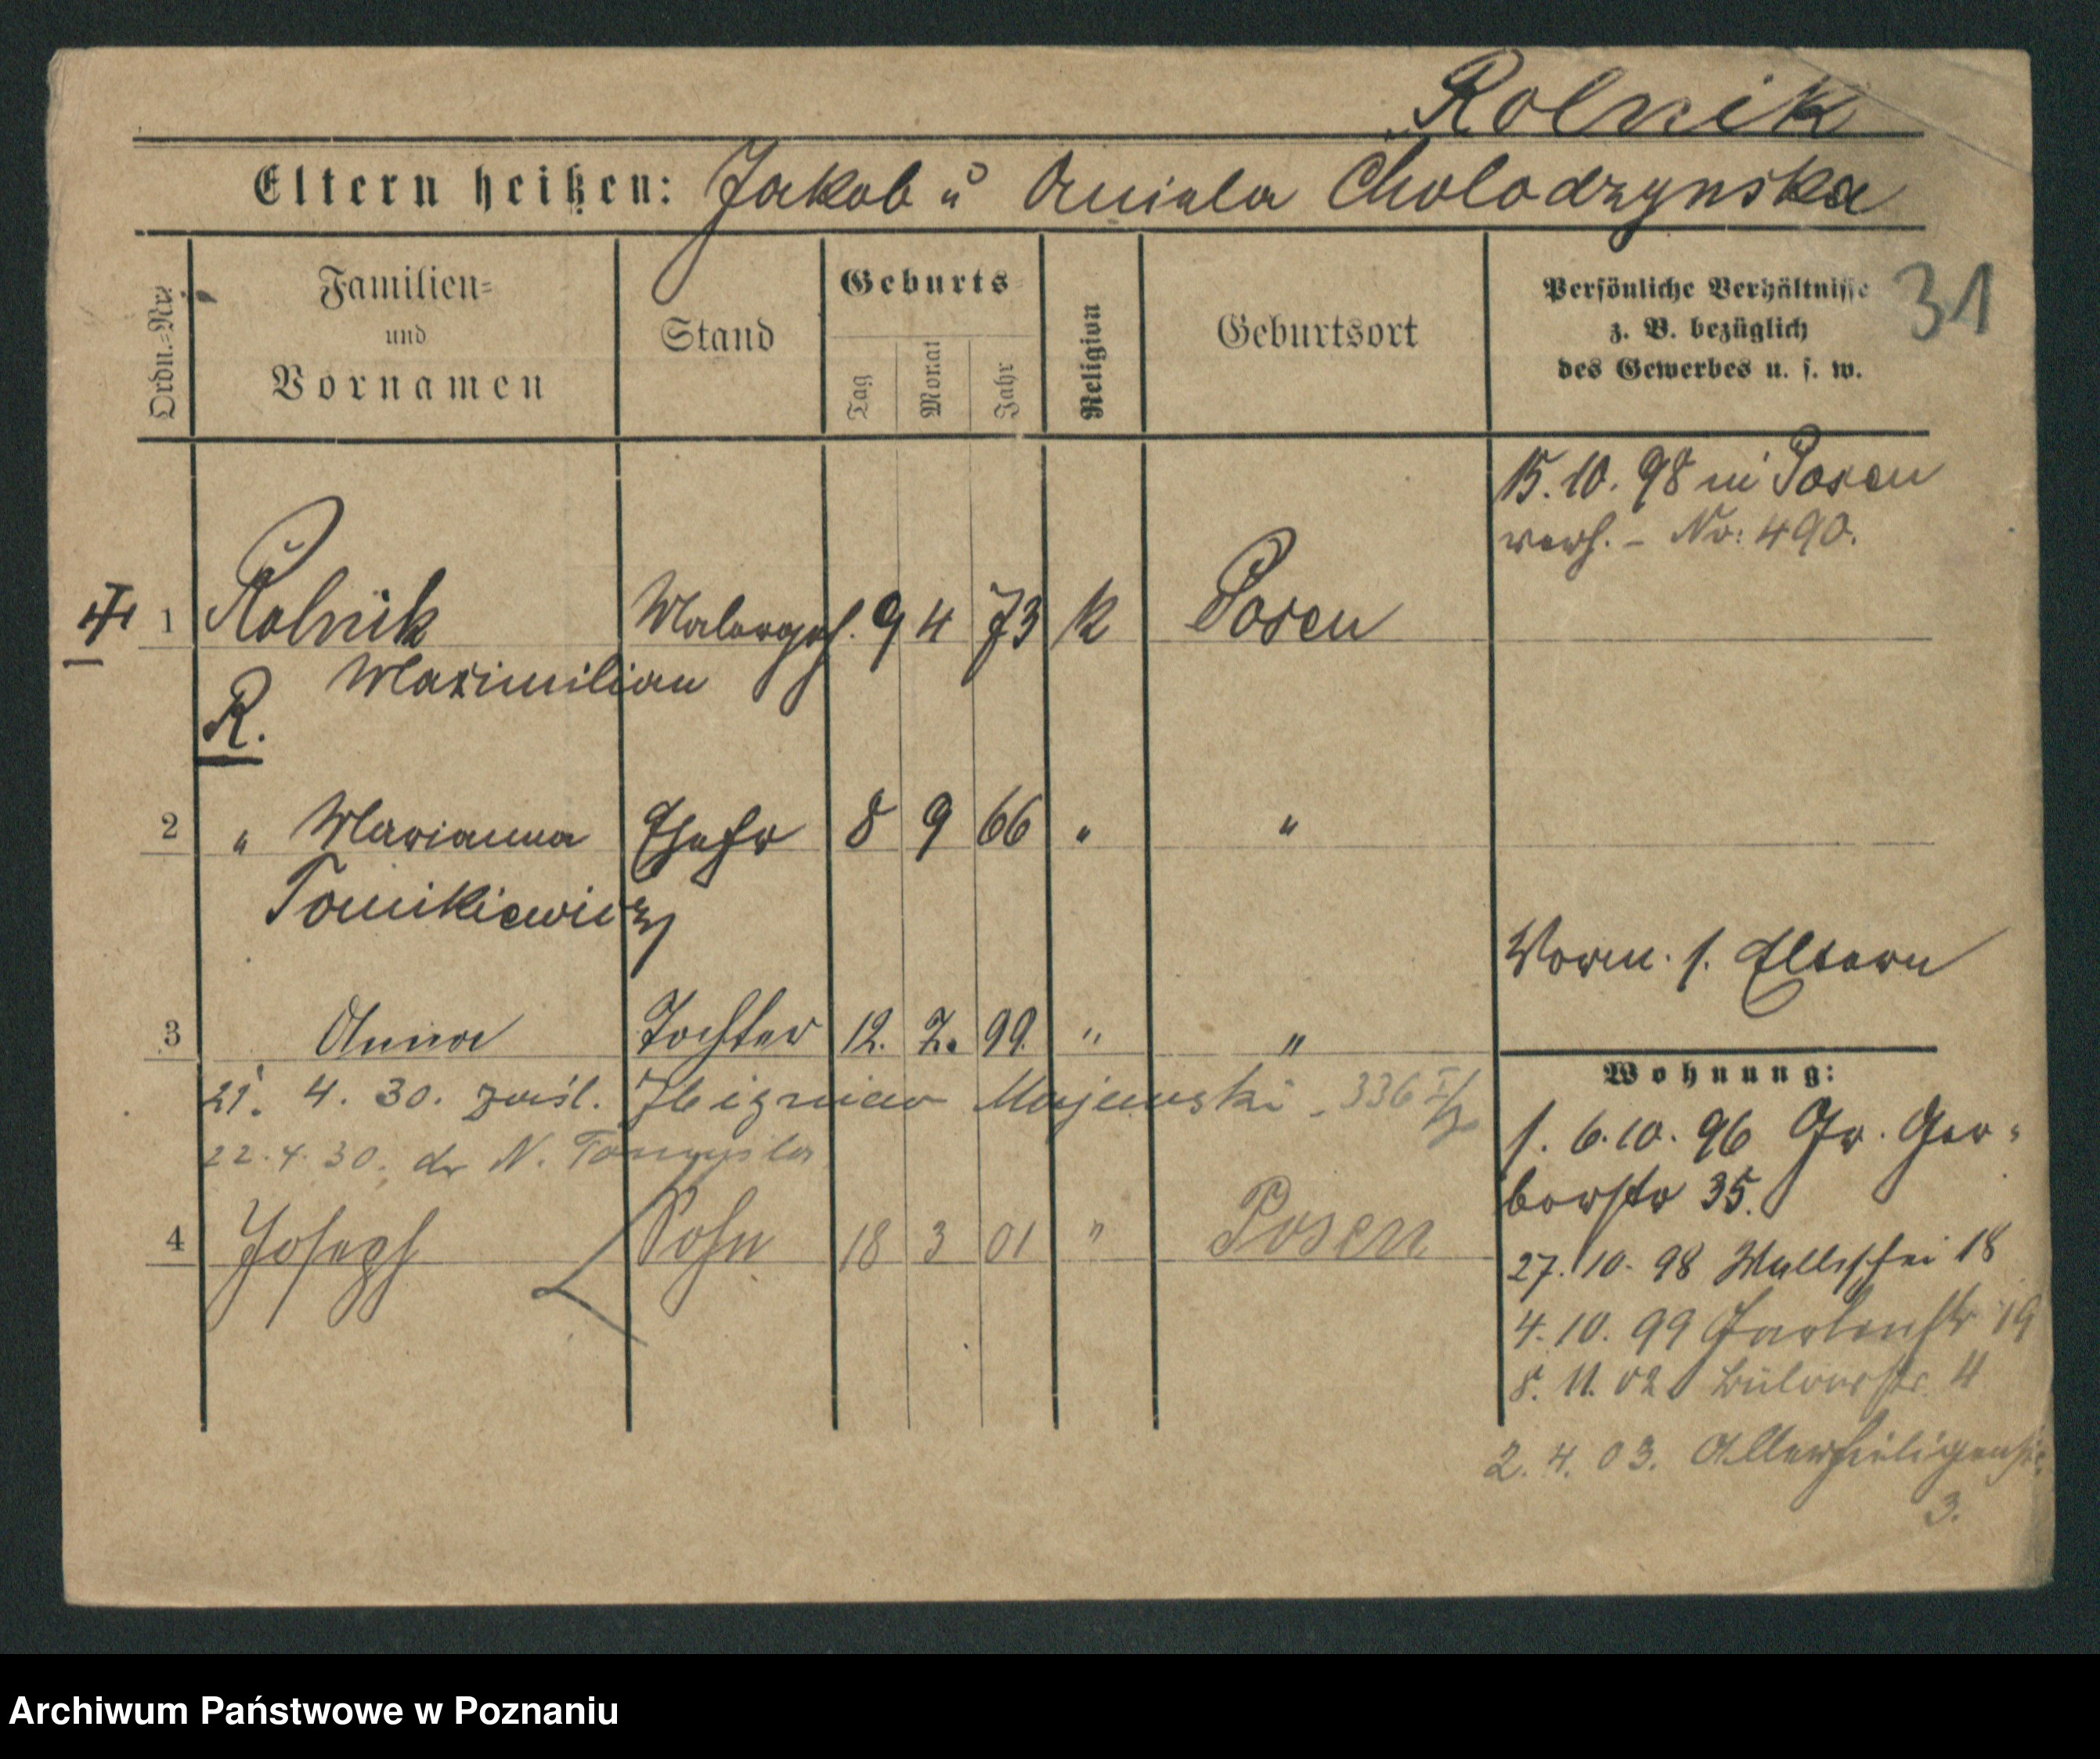 Rolnik
Eltern heißen: Jakob u Aniela Cholodzynska
Ordn.=Nr.
Familien=
und
Vornamen
Stand
Geburts=
Tag
Monat
Jahr
Religion
Geburtsort
Persönliche Verhältnisse
z. B. bezüglich
des Gewerbes u. s. w.
31
15.10.98 in Posen
verh. – No: 490.
1 Rolnik Malergeh. 9 4 73 K Posen
Maximilian
R.
2 " Marianna Ehefr 8 9 66 " "
Tomikiewicz
Vorm. s. Eltern
3 Anna Tochter 12. 7. 99. " "
21. 4. 30. zaśl. Zbigniew Majewski - 336
22.4.30. do N. Tomyśla
4 Joseph Sohn 18 3 01 " Posen
Wohnung:
1. 6.10.96 Gr. Ger-
berstr 35.
27.10.98 Wallischei 18
4.10.99 Gartenstr 19
8.11.02 Bülowstr. 4
2.4.03. Allerheiligenstr.
3.
Archiwum Państwowe w Poznaniu